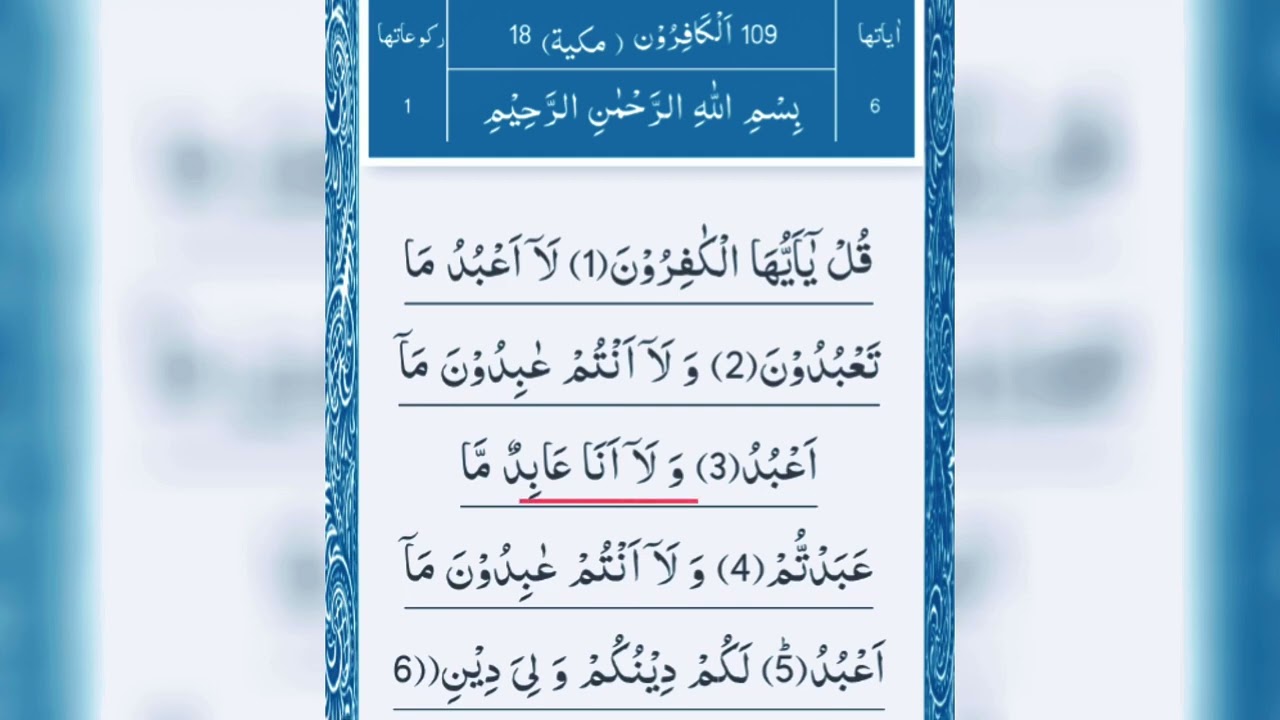 اٰیاتها
109 اَلْكَافِرُوْن ( مكية) 18
ركوعاتها
6
بِسْمِ اللهِ الرَّحْمٰنِ الرَّحِیْمِ
1
قُلْ یٰۤاَیُّهَا الْكٰفِرُوْنَ(1) لَاۤ اَعْبُدُ مَا
تَعْبُدُوْنَ(2) وَ لَاۤ اَنْتُمْ عٰبِدُوْنَ مَاۤ
اَعْبُدُ(3) وَ لَاۤ اَنَا عَابِدٌ مَّا
عَبَدْتُّمْ(4) وَ لَاۤ اَنْتُمْ عٰبِدُوْنَ مَاۤ
اَعْبُدُؕ(5) لَكُمْ دِیْنُكُمْ وَ لِیَ دِیْنِ((6